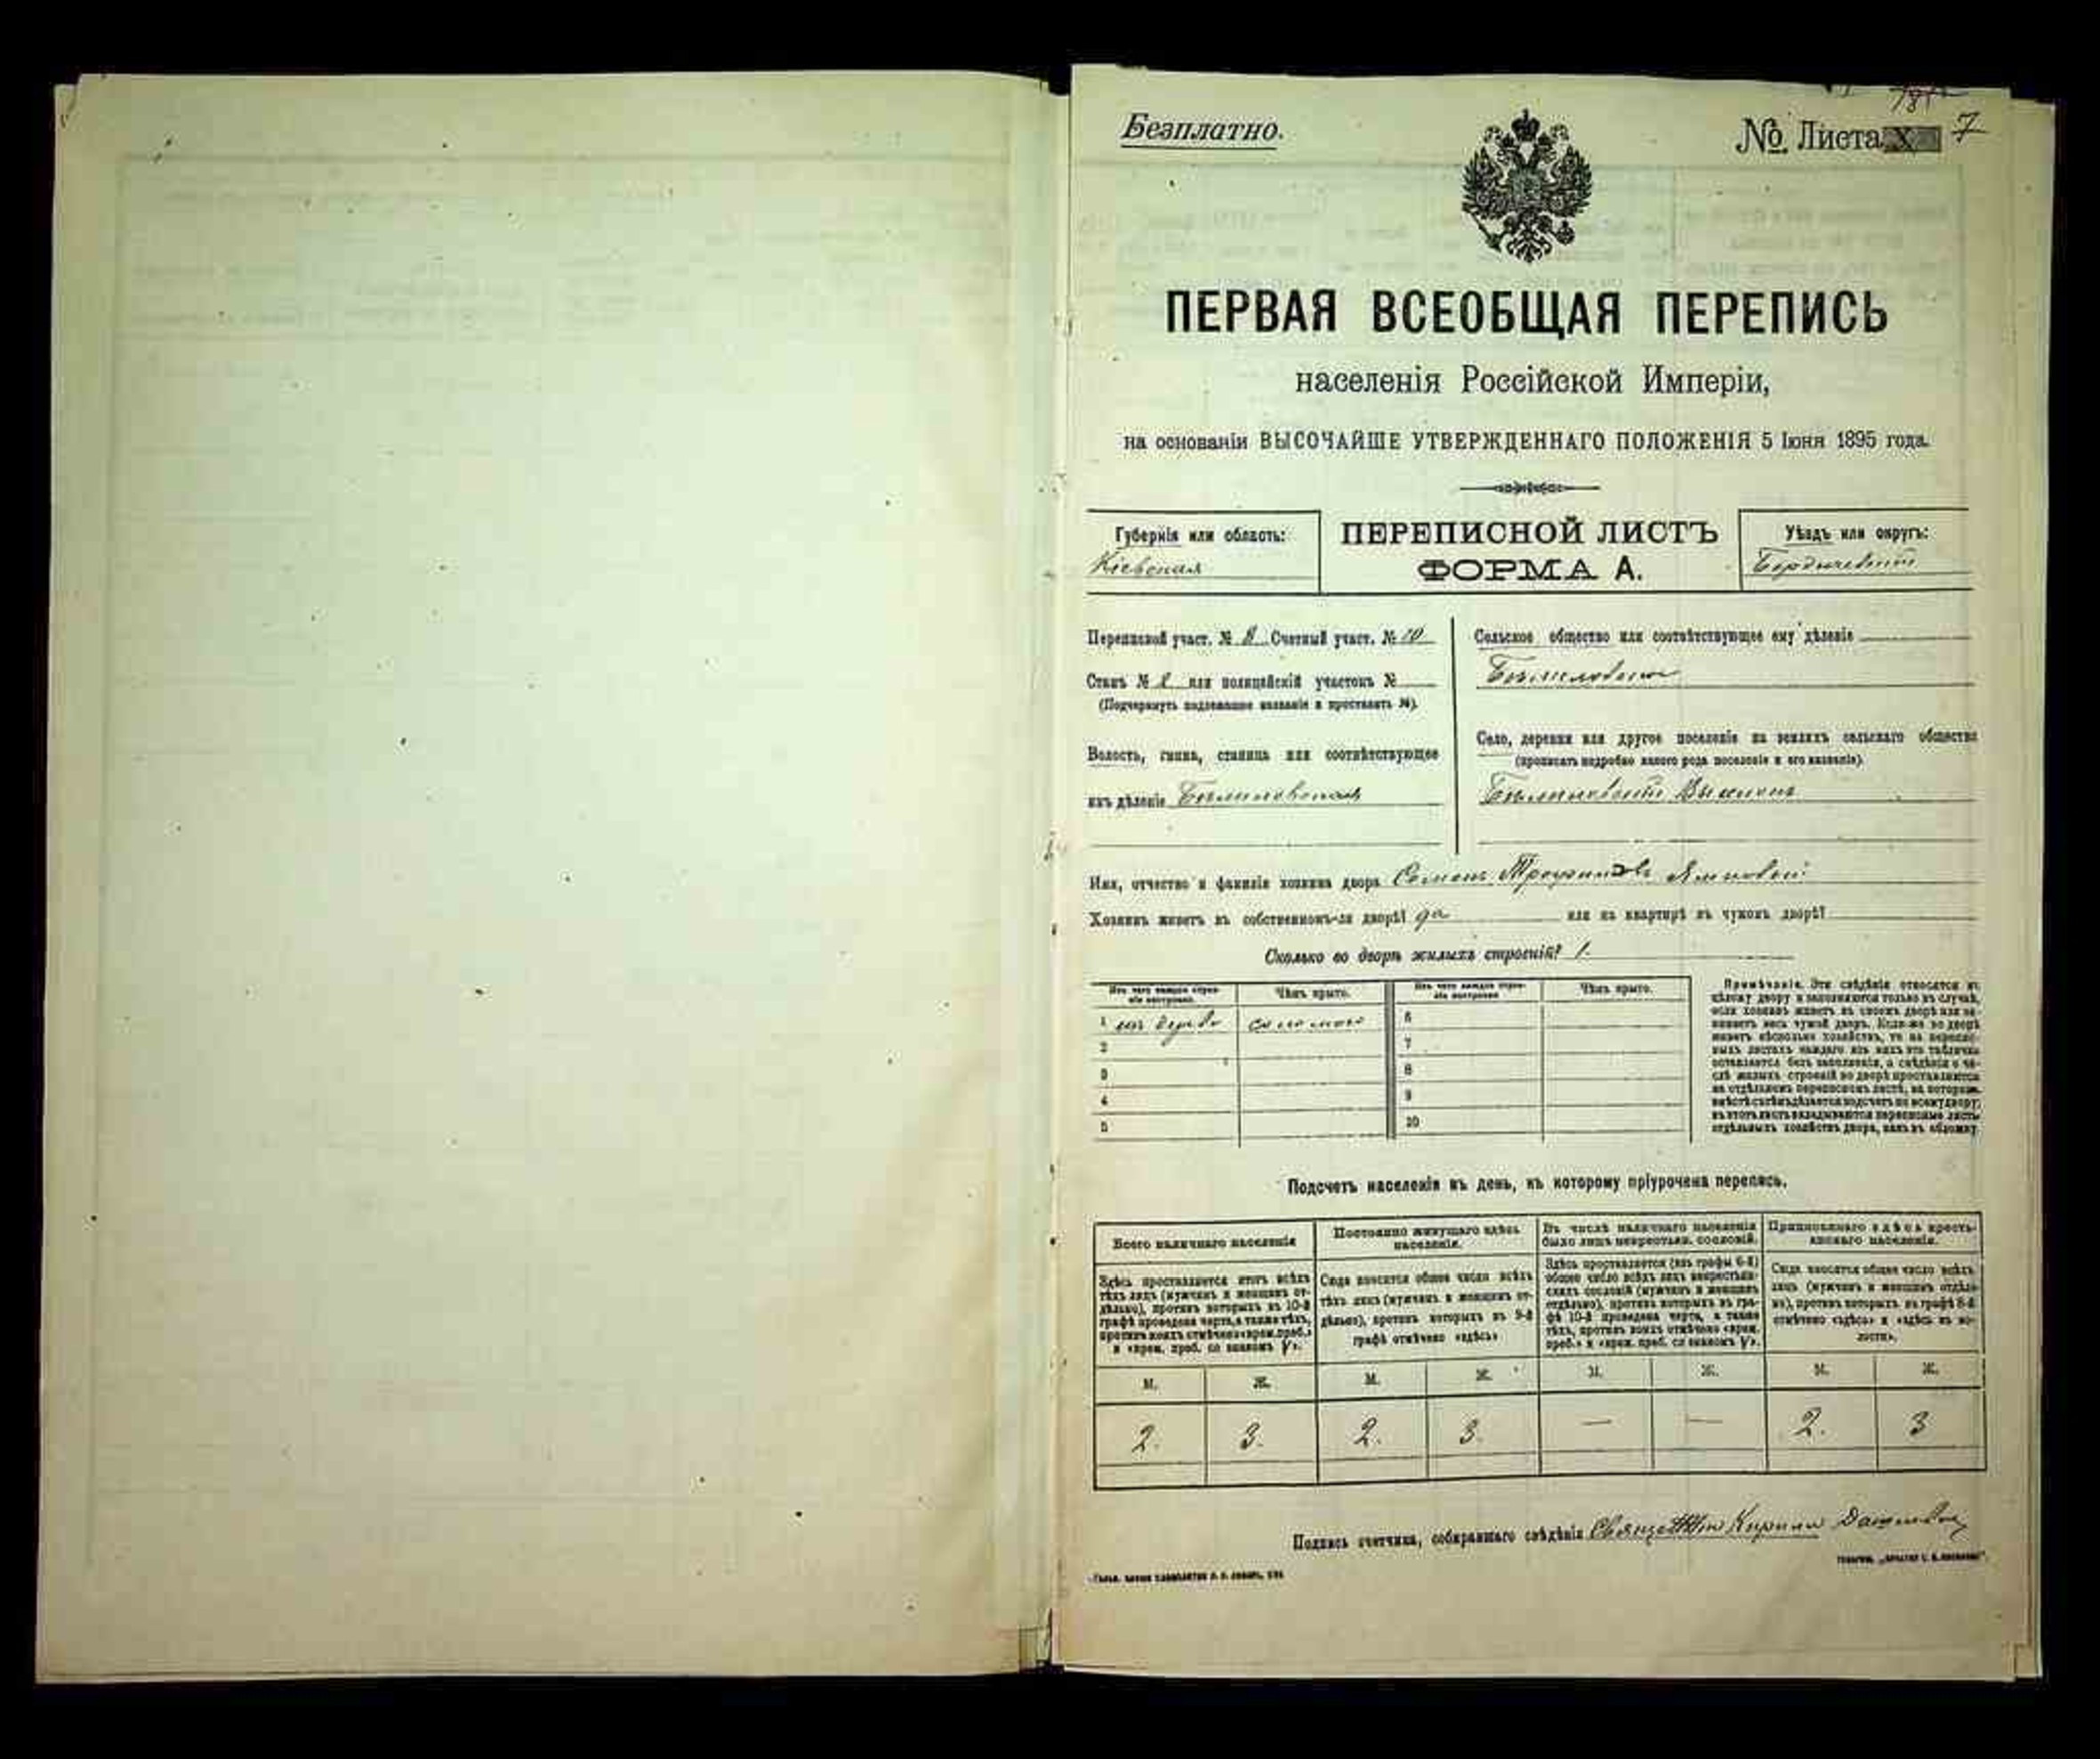 Безплатно.
№ Листа 7
ПЕРВАЯ ВСЕОБЩАЯ ПЕРЕПИСЬ
населенія Россійской Имперіи,
на основаніи ВЫСОЧАЙШЕ УТВЕРЖДЕННАГО ПОЛОЖЕНІЯ 5 Іюня 1895 года.
Губернія или область:
Кіевская
ПЕРЕПИСНОЙ ЛИСТЪ
ФОРМА А.
Уѣздъ или округъ:
Бердичевскій
Переписной участ. № 8 Счетный участ. № 10
Станъ № 2 или полицейскій участокъ №
(Подчеркнуть надлежащее названіе и проставить №).
Волость, гмина, станица или соотвѣтствующее
имъ дѣленіе
Сельское общество или соотвѣтствующее ему дѣленіе
Село, деревня или другое поселеніе на земляхъ сельскаго общества
(прописать подробно какого рода поселеніе и его названіе).
Имя, отчество и фамилія хозяина двора Семенъ
Хозяинъ живетъ въ собственномъ-ли дворѣ? да или на квартирѣ въ чужомъ дворѣ?
Сколько во дворѣ жилыхъ строеній? 1.
Изъ чего каждое строеніе построено.
Чѣмъ крыто.
Изъ чего каждое строеніе построено.
Чѣмъ крыто.
1 соломою 6
2 7
3 8
4 9
5 10
Примѣчаніе. Эти свѣдѣнія относятся къ
цѣлому двору и заполняются только въ случаѣ,
если хозяинъ живетъ въ своемъ дворѣ или за-
нимаетъ весь чужой дворъ. Если-же во дворѣ
живетъ нѣсколько хозяйствъ, то на перепис-
ныхъ листахъ каждаго изъ нихъ эта табличка
оставляется безъ заполненія, а свѣдѣнія о чи-
слѣ жилыхъ строеній во дворѣ проставляются
на отдѣльномъ переписномъ листѣ, на которомъ
вмѣстѣ съ тѣмъ дѣлается подсчетъ по всему двору;
въ этотъ листъ вкладываются переписные листы
отдѣльныхъ хозяйствъ двора, какъ въ обложку.
Подсчетъ населенія въ день, къ которому пріурочена перепись.
Всего наличнаго населенія
Здѣсь проставляется итогъ всѣхъ
тѣхъ лицъ (мужчинъ и женщинъ от-
дѣльно), противъ которыхъ въ 10-й
графѣ проведена черта, а также тѣхъ,
противъ коихъ отмѣчено «врем. преб.»
и «врем. преб. со знакомъ V».
Постоянно живущаго здѣсь
населенія.
Сюда вносится общее число всѣхъ
тѣхъ лицъ (мужчинъ и женщинъ от-
дѣльно), противъ которыхъ въ 9-й
графѣ отмѣчено «здѣсь»
Въ числѣ наличнаго населенія
было лицъ некрестьян. сословій.
Здѣсь проставляется (изъ графы 6-й)
общее число всѣхъ лицъ некрестьян-
скихъ сословій (мужчинъ и женщинъ
отдѣльно), противъ которыхъ въ гра-
фѣ 10-й проведена черта, а также
тѣхъ, противъ коихъ отмѣчено «врем.
преб.» и «врем. преб. со знакомъ V».
Приписаннаго здѣсь кресть-
янскаго населенія.
Сюда вносится общее число всѣхъ
лицъ (мужчинъ и женщинъ отдѣль-
но), противъ которыхъ въ графѣ 8-й
отмѣчено «здѣсь» и «здѣсь въ во-
лости».
М. Ж. М. Ж. М. Ж. М. Ж.
2. 3. 2. 3. — — 2. 3
Подпись счетчика, собиравшаго свѣдѣнія Кириллъ